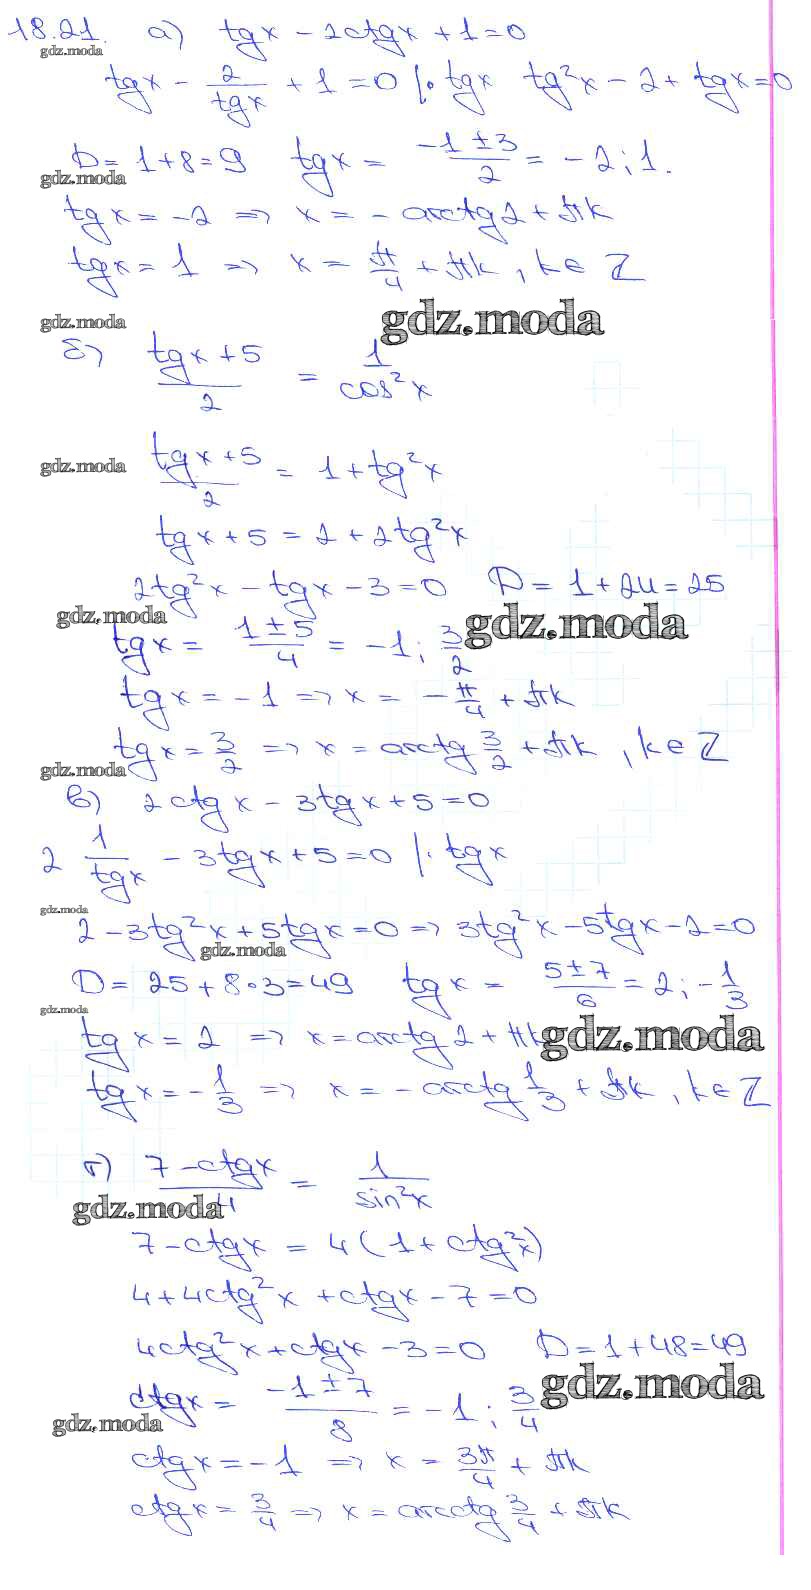 18.21. а) tgx - 2ctgx + 1 = 0
gdz.moda
tgx - 2/tgx + 1 = 0 |· tgx   tg²x - 2 + tgx = 0
D = 1 + 8 = 9   tgx = (-1 ± 3)/2 = -2; 1.
gdz.moda
tgx = -2 => x = - arctg2 + πk
tgx = 1 => x = π/4 + πk, k ∈ Z
gdz.moda gdz.moda
б) (tgx + 5)/2 = 1/cos²x
gdz.moda (tgx + 5)/2 = 1 + tg²x
tgx + 5 = 2 + 2tg²x
2tg²x - tgx - 3 = 0   D = 1 + 24 = 25
gdz.moda gdz.moda
tgx = (1 ± 5)/4 = -1; 3/2
tgx = -1 => x = - π/4 + πk
tgx = 3/2 => x = arctg 3/2 + πk, k ∈ Z
gdz.moda
в) 2ctgx - 3tgx + 5 = 0
2 1/tgx - 3tgx + 5 = 0 |· tgx
gdz.moda
2 - 3tg²x + 5tgx = 0 => 3tg²x - 5tgx - 2 = 0
gdz.moda
D = 25 + 8·3 = 49   tgx = (5 ± 7)/6 = 2; -1/3
gdz.moda
tgx = 2 => x = arctg2 + πk gdz.moda
tgx = -1/3 => x = - arctg 1/3 + πk, k ∈ Z
г) (7 - ctgx)/4 = 1/sin²x
gdz.moda
7 - ctgx = 4(1 + ctg²x)
4 + 4ctg²x + ctgx - 7 = 0
4ctg²x + ctgx - 3 = 0   D = 1 + 48 = 49
gdz.moda
ctgx = (-1 ± 7)/8 = -1; 3/4
gdz.moda
ctgx = -1 => x = 3π/4 + πk
ctgx = 3/4 => x = arcctg 3/4 + πk